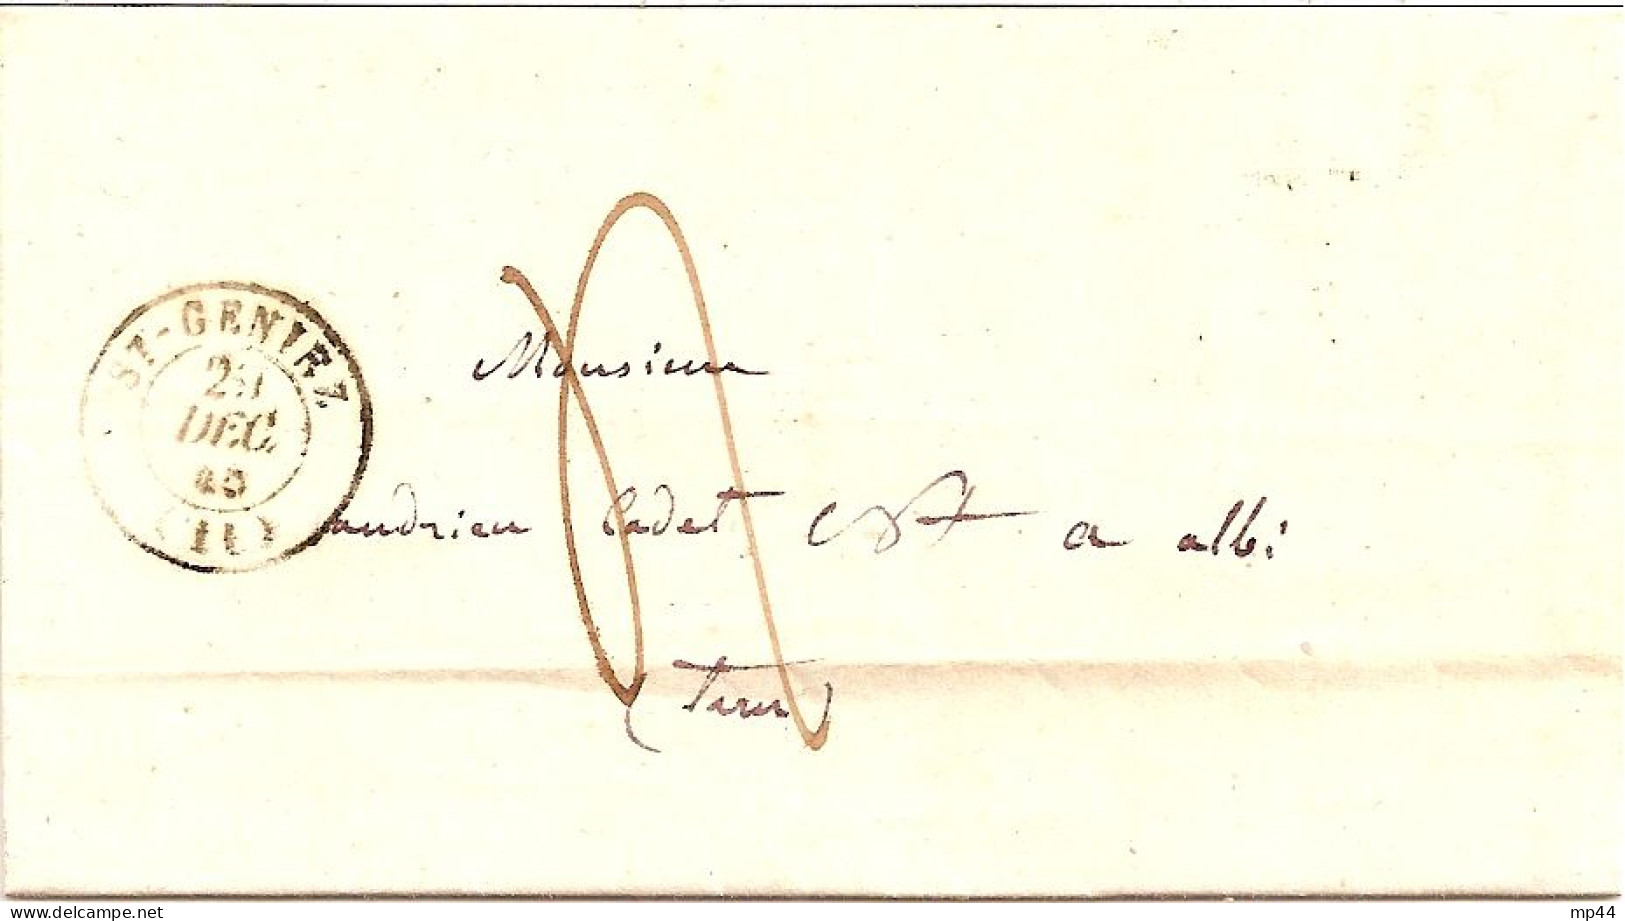 ST-GENIEZ
DEC.
(11)
Monsieur
andrieu Cadet a albi
(Tarn)
delcampe.net
mp44